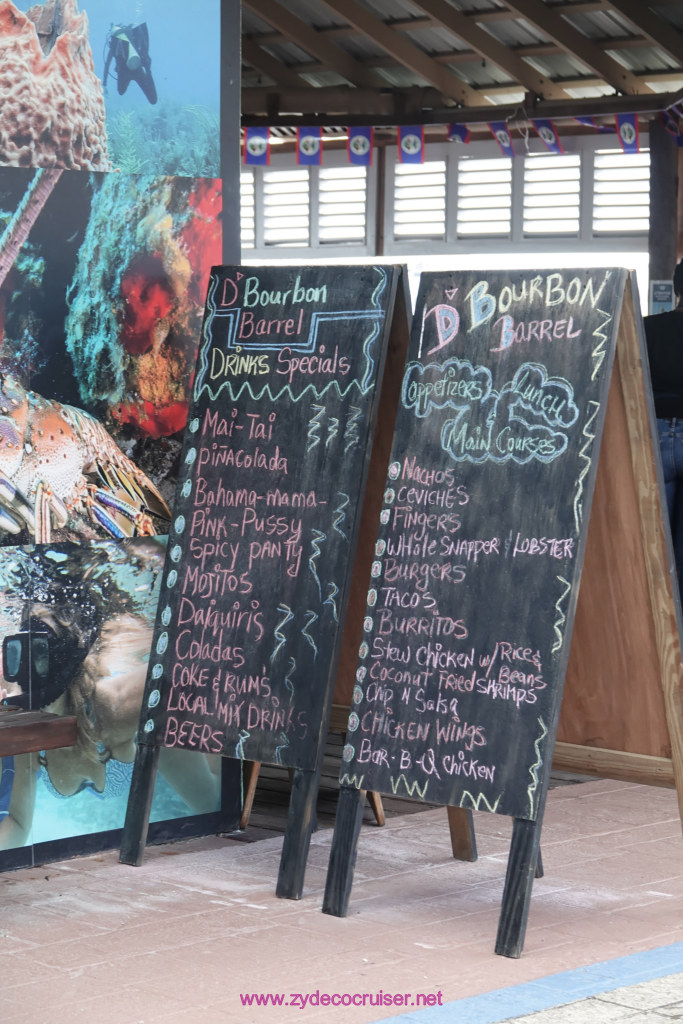 D' Bourbon
Barrel
DRINKS Specials
Mai-Tai
PIÑACOlada
Bahama-mama-
Pink-Pussy
Spicy panty
Mojitos
Daiquiris
Coladas
COKE & RUM'S
LOCAL MIX DRINKS
BEERS
D' BOURBON
BARREL
appetizers LUNCH
Main Courses
NACHOS
CEVICHES
FINGERS
WHOLE SNAPPER & LOBSTER
BURGERS
TACOS
BURRITOS
STEW CHICKEN W/ RICE &
BEANS
COCONUT FRIED SHRIMPS
CHIP N SALSA
CHICKEN WINGS
BAR-B-Q CHICKEN
www.zydecocruiser.net